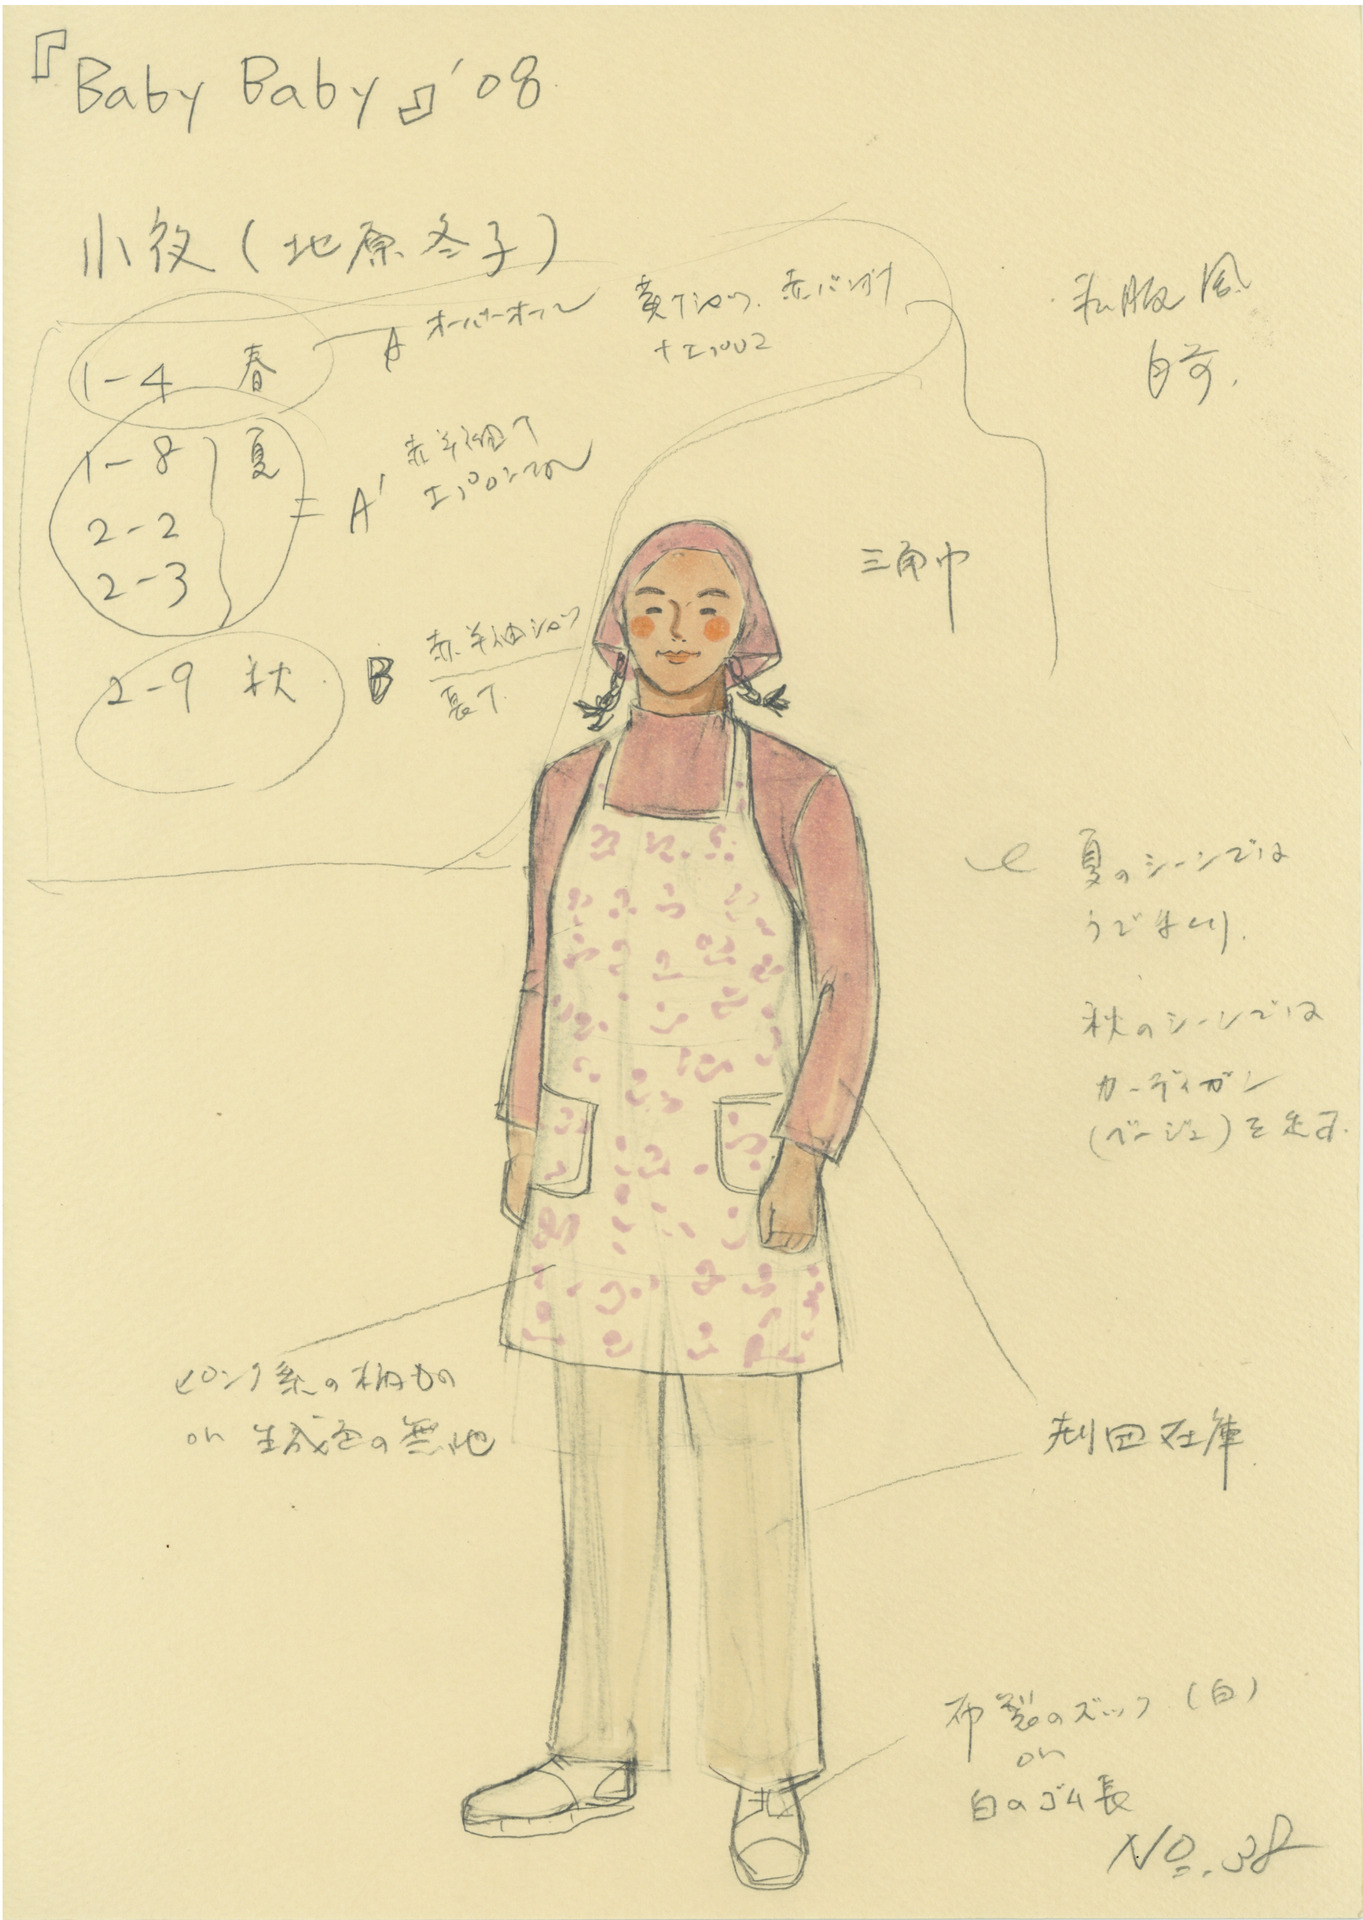 『Baby Baby』'08
小夜(地原冬子)
私服風
自前.
1-4 春
A オーバーオール
黄Tシャツ. 赤バンダナ
1-8
2-2
2-3
夏
= A' 赤半袖T
エプロン
2-9 秋
B 赤半袖シャツ
長T
三角巾
夏のシーンでは
うでまくり.
秋のシーンでは
カーディガン
(ベージュ)を
ピンク系の柄もの
or 生成色の無地
劇団在庫
布製のズック(白)
or
白のゴム長
No.38